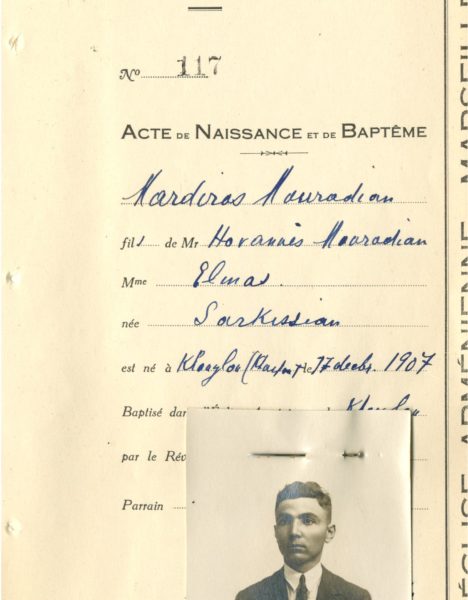 No 117
ACTE DE NAISSANCE ET DE BAPTÊME
Mardiros Mouradian
fils de Mr Hovannès Mouradian
Mme Elmas
née Sarkissian
est né à le 17 decbr. 1907
Baptisé
par le Rév
Parrain
ÉGLISE ARMÉNIENNE MARSEILLE